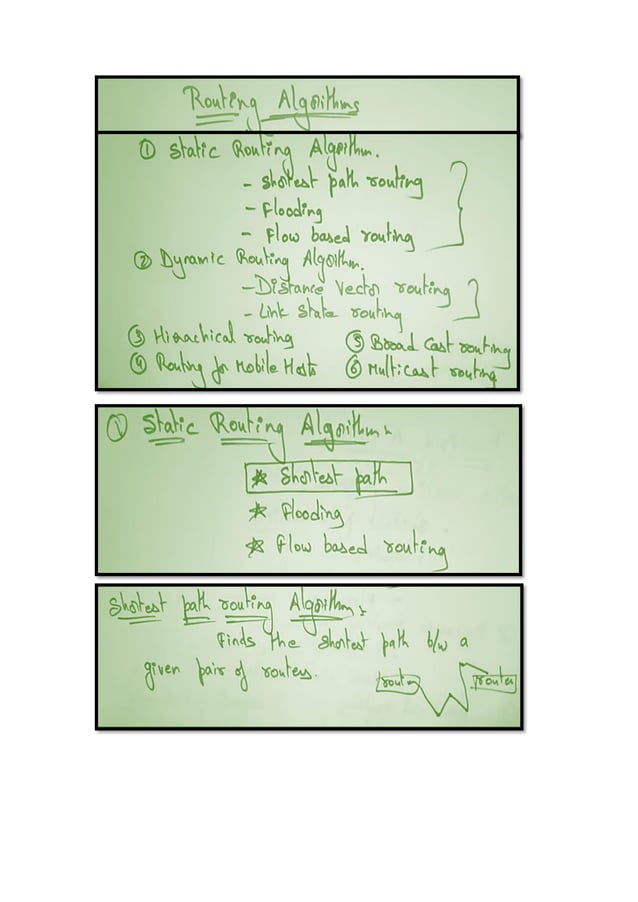 Routing Algorithms
① Static Routing Algorithm.
- Shortest path routing
- Flooding
- Flow based routing
② Dynamic Routing Algorithm.
- Distance Vector routing
- Link State routing
③ Hierachical routing
④ Routing for Mobile Hosts
⑤ Broad Cast routing
⑥ Multicast routing
① Static Routing Algorithm:-
* Shortest path
* Flooding
* Flow based routing
Shortest path routing Algorithm:-
Finds the shortest path b/w a
given pair of routers.
router router